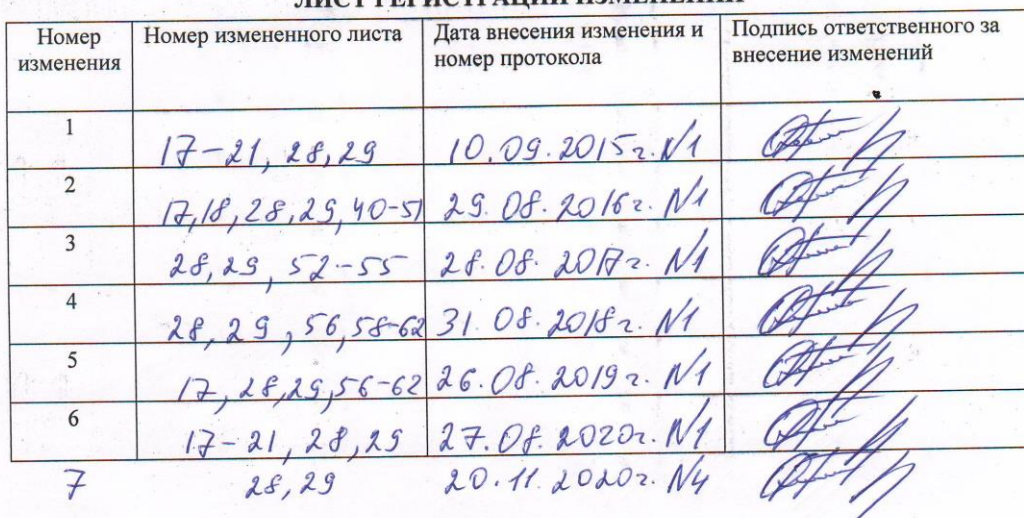 ЛИСТ РЕГИСТРАЦИИ ИЗМЕНЕНИЙ
Номер изменения Номер измененного листа Дата внесения изменения и номер протокола Подпись ответственного за внесение изменений
1 17-21, 28,29 10.09.2015г. №1
2 17,18,28,29,40-51 29.08.2016г. №1
3 28,29, 52-55 28.08.2017г. №1
4 28, 29, 56,58-62 31.08.2018г. №1
5 17, 28,29,56-62 26.08.2019г. №1
6 17-21, 28,29 27.08.2020г. №1
7 28,29 20.11.2020г. №4